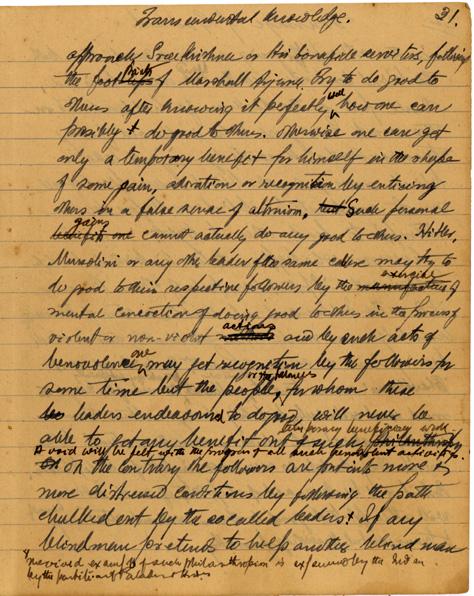 Transcendental Knowledge. 31.
approach Sree Krishna or His bonafide servitor, following
the footsteps of Marshall Arjuna. Try to do good to
others after knowing it perfectly well how one can
possibly do good to others. Otherwise one can get
only a temporary benefit for himself in the shape
of some gain, adoration or recognition by enticing
others in a false sense of altruism, but such personal
gains
benefit one cannot actually do any good to others. Hitler,
Mussolini or any other leader of the same calibre may try to
exercise
do good to their respective followers by the manufacture of
mental concoction of doing good to others in the forms of
actions
violent or non-violent and by such acts of
benevolence, one may get recognition by the followers for
or the followers
some time but the people, for whom these
leaders endeavour to do good, will never be
temporary beneficiary work
able to get any benefit out of such philanthropy
A void will be felt in the progress of all such benevolent activities.
On the contrary the followers are put into more &
more distressed conditions by following the path
chalked out by the so called leaders. If any
blind man pretends to help another blind man
vivid example of such philanthropism is experienced by the Indian
by the partition of